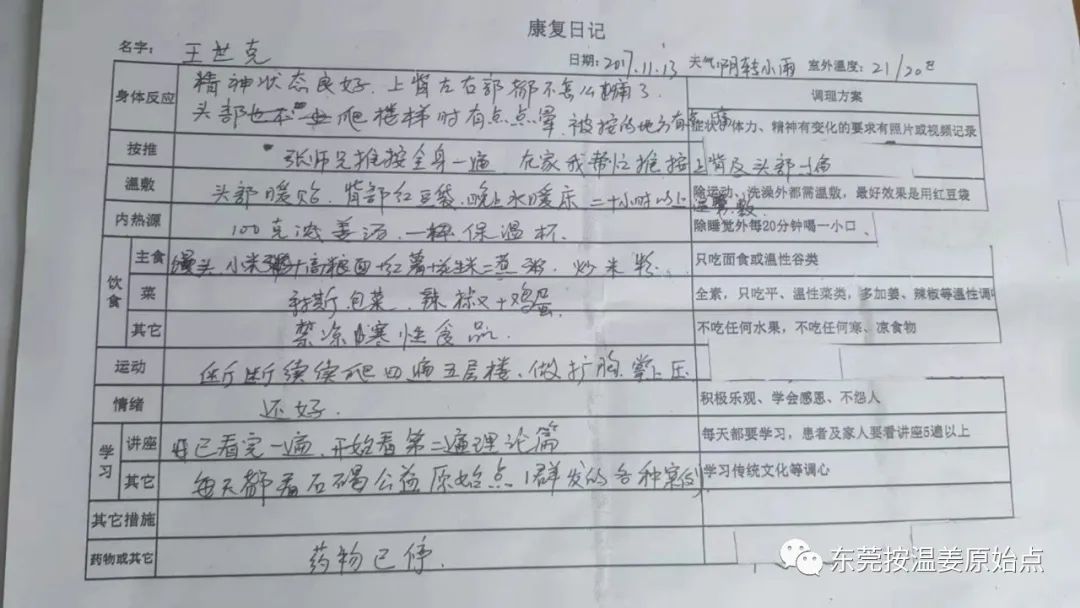 康复日记
名字: 王世克 日期: 2017.11.13 天气: 阴转小雨 室外温度: 21/20℃
身体反应 精神状态良好.上背左右部都不怎么痛了. 调理方案
头部 爬楼梯时有点点晕.被按的地方有点痛 症状、体力、精神有变化的要求有照片或视频记录
按推 张师兄推按全身一遍 在家我帮忙推按上背及头部
温敷 头部暖贴.背部红豆袋.晚上水暖床 二十小时以上温敷. 除运动、洗澡外都需温敷，最好效果是用红豆袋
内热源 100克浓姜汤.一杯.保温杯. 除睡觉外每20分钟喝一小口
饮食 主食 馒头.小米粥+高粮面+红薯+花生米=煮粥.炒米粉. 只吃面食或温性谷类
菜 包菜.辣椒+鸡蛋. 全素，只吃平、温性菜类，多加姜、辣椒等温性调
其它 禁凉寒性食品. 不吃任何水果，不吃任何寒、凉食物
运动 断断续续爬四遍五层楼、做扩胸.掌上压
情绪 还好. 积极乐观、学会感恩、不怨人
学习 讲座 已看完一遍.开始看第二遍理论篇 每天都要学习，患者及家人要看讲座5遍以上
其它 每天都看石碣公益原始点1群发的各种案例 学习传统文化等调心
其它措施
药物或其它 药物已停.
东莞按温姜原始点